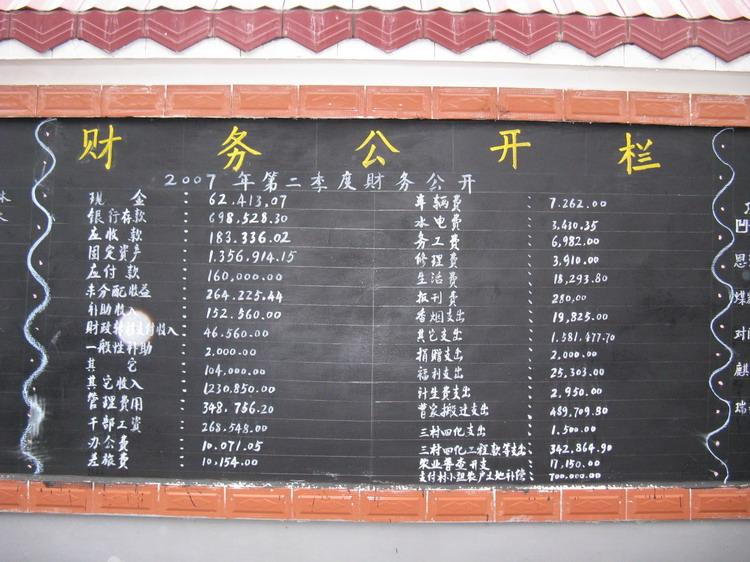 财务公开栏
2007年第二季度财务公开
现金：62.413.07
银行存款：698.528.30
应收款：183.336.02
固定资产：1.356.914.15
应付款：160,000.00
未分配收益：264.225.44
补助收入：152.560.00
财政转移支付收入：46.560.00
一般性补助：2.000.00
其它：104,000.00
其它收入：1230.850.00
管理费用：348.756.20
干部工资：268.548.00
办公费：10.071.05
差旅费：10.154.00
车辆费：7.262.00
水电费：3,430.35
务工费：6,982.00
修理费：3,910.00
生活费：18,293.80
报刊费：280,00
香烟支出：19,825.00
其它支出：1.581.477.70
捐赠支出：2,000.00
福利支出：25,303.00
计生费支出：2,950.00
曹家搬迁支出：489,709.80
三村四化支出：1.500.00
三村四化工程款等支出：342,864.90
农业普查开支：17,150.00
支付村小组农户土地补偿：700,000.00
凹
思
煤
对
麒
瑞